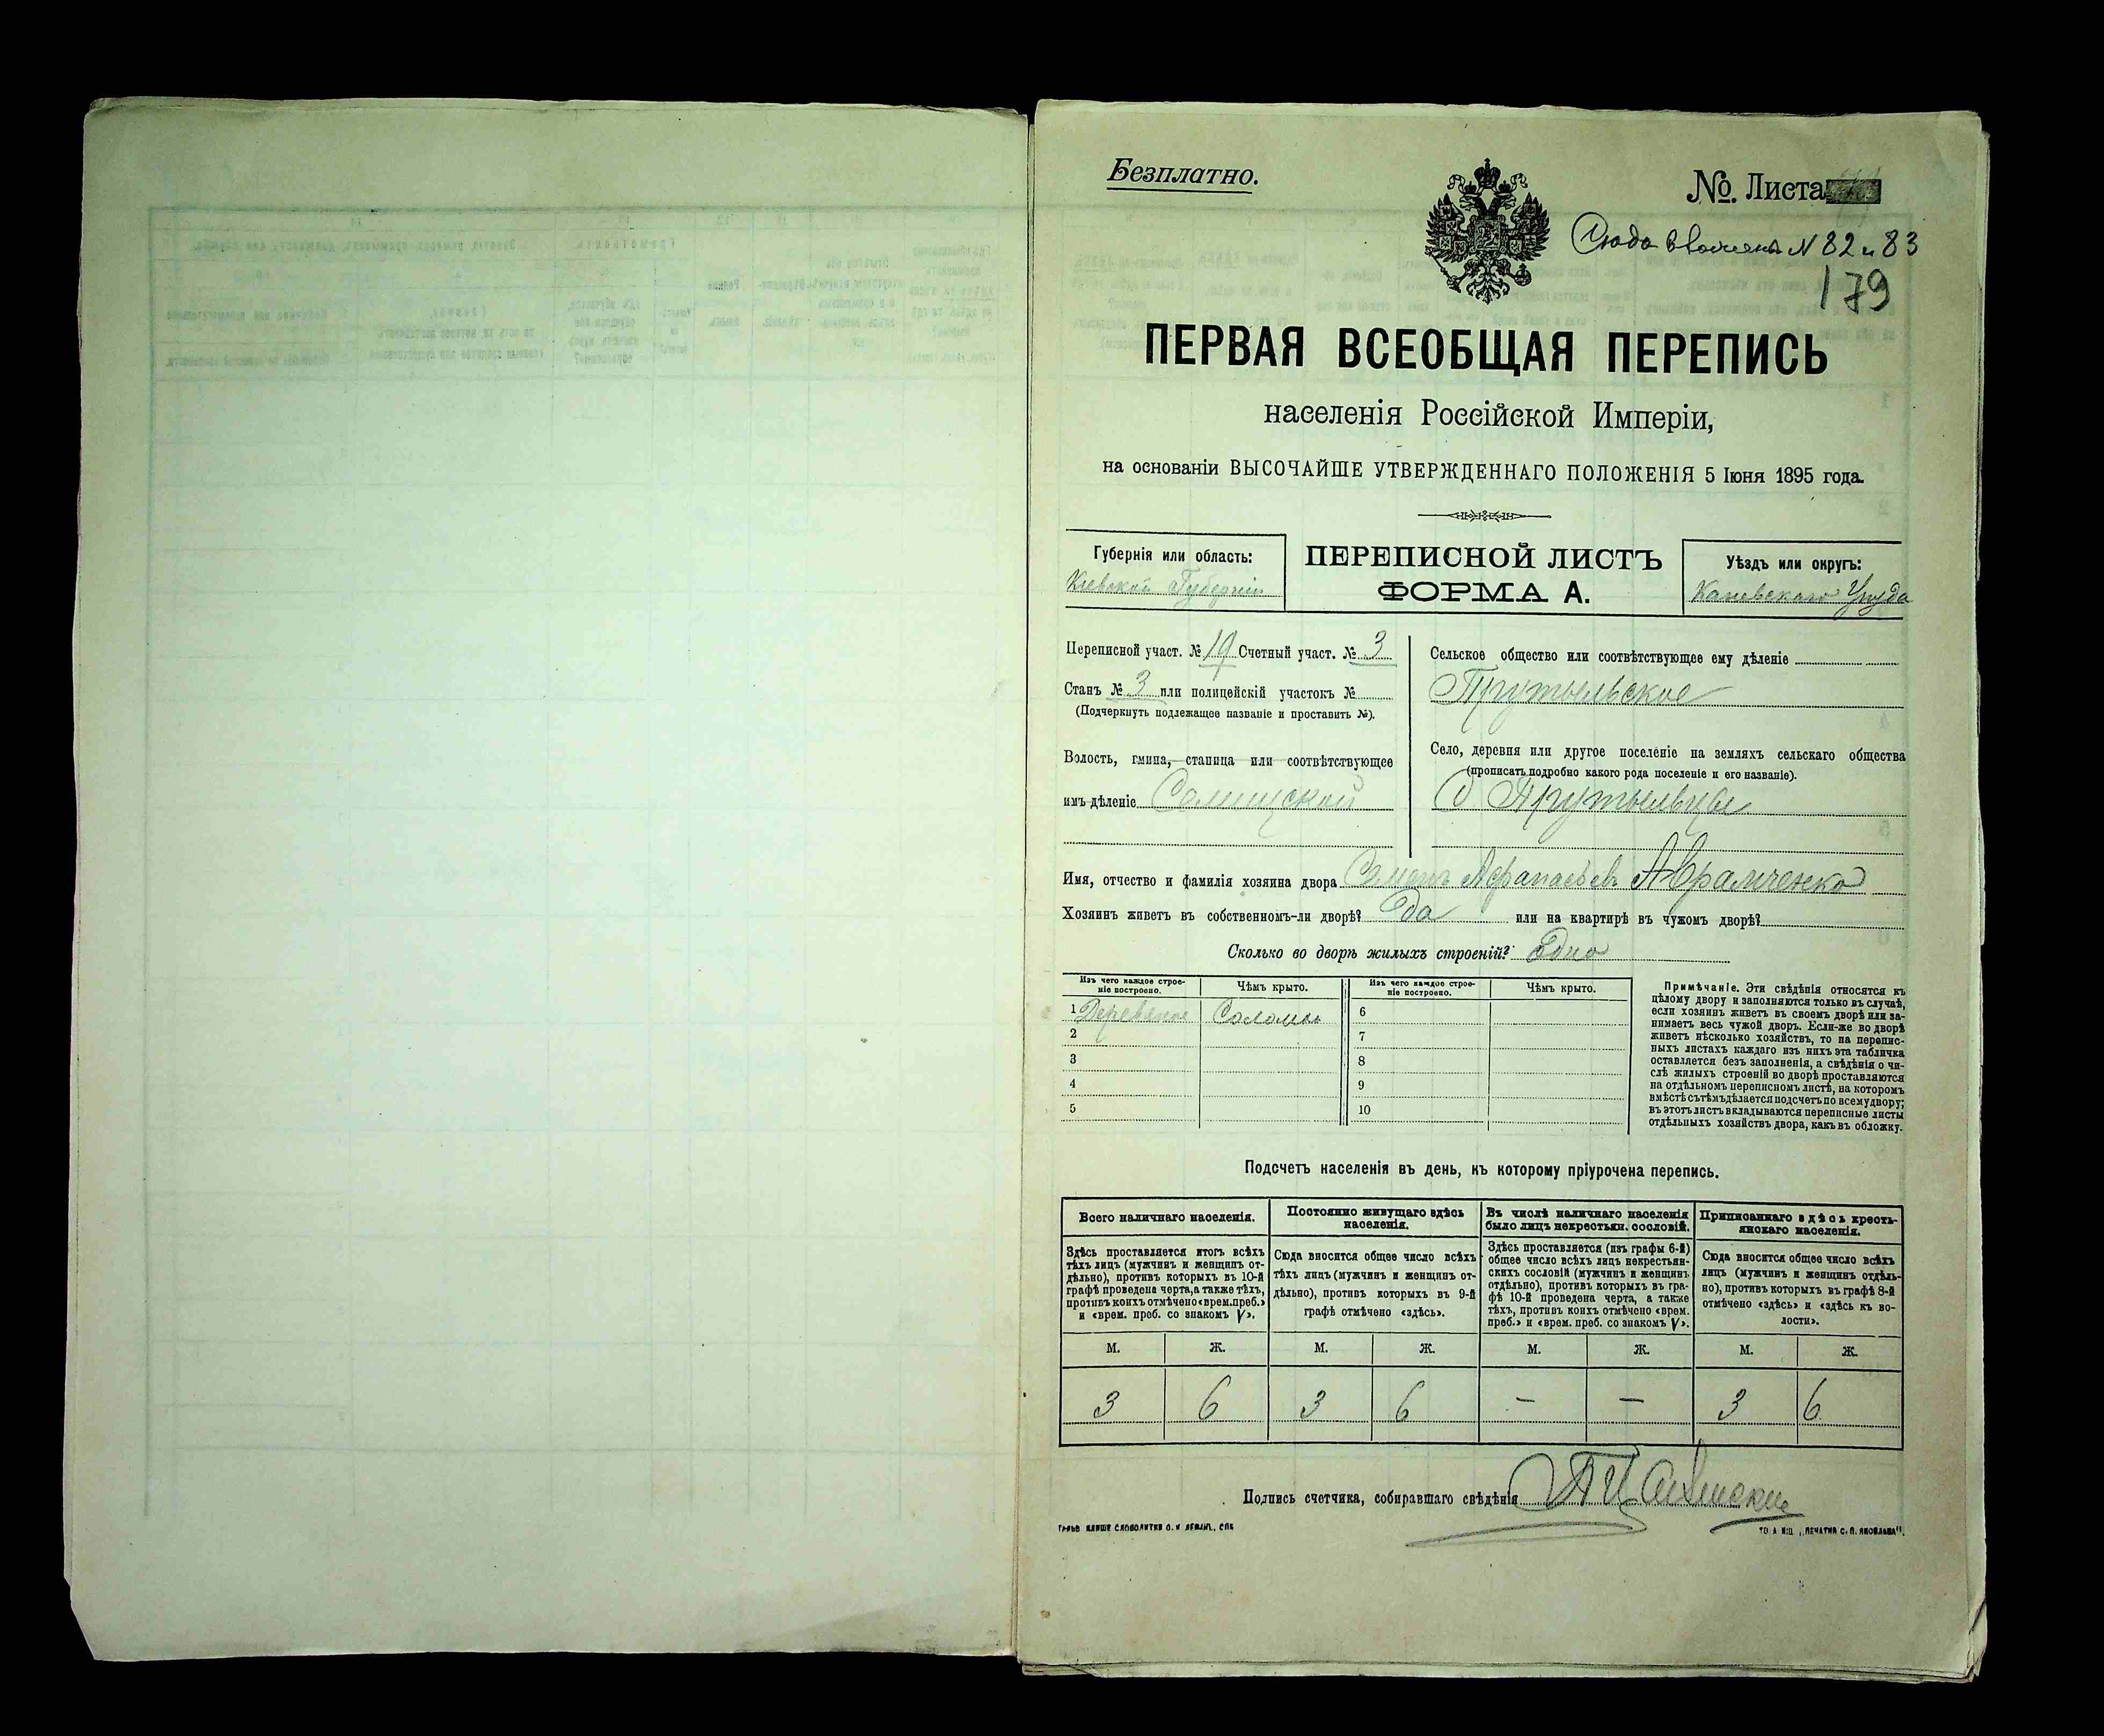 Безплатно.
№. Листа
Сюда вложены N 82 и 83
179
ПЕРВАЯ ВСЕОБЩАЯ ПЕРЕПИСЬ
населенія Россійской Имперіи,
на основаніи ВЫСОЧАЙШЕ УТВЕРЖДЕННАГО ПОЛОЖЕНІЯ 5 Іюня 1895 года.
Губернія или область:
Кіевской Губерніи
ПЕРЕПИСНОЙ ЛИСТЪ
ФОРМА А.
Уѣздъ или округъ:
Каневскаго Уѣзда
Переписной участ. № 19 Счетный участ. № 3
Станъ № 3 или полицейскій участокъ №
(Подчеркнуть подлежащее названіе и проставить №).
Волость, гмина, станица или соотвѣтствующее
имъ дѣленіе
Сельское общество или соотвѣтствующее ему дѣленіе
Прутыльское
Село, деревня или другое поселеніе на земляхъ сельскаго общества
(прописать подробно какого рода поселеніе и его названіе).
Имя, отчество и фамилія хозяина двора Семенъ Афанасьевъ Авраменко
Хозяинъ живетъ въ собственномъ-ли дворѣ? Да или на квартирѣ въ чужомъ дворѣ?
Сколько во дворѣ жилыхъ строеній? Одно
Изъ чего каждое строе-
ніе построено.
Чѣмъ крыто.
Изъ чего каждое строе-
ніе построено.
Чѣмъ крыто.
1 Деревяное Солома 6
2 7
3 8
4 9
5 10
Примѣчаніе. Эти свѣдѣнія относятся къ
цѣлому двору и заполняются только въ случаѣ,
если хозяинъ живетъ въ своемъ дворѣ или за-
нимаетъ весь чужой дворъ. Если-же во дворѣ
живетъ нѣсколько хозяйствъ, то на перепис-
ныхъ листахъ каждаго изъ нихъ эта табличка
оставляется безъ заполненія, а свѣдѣнія о чи-
слѣ жилыхъ строеній во дворѣ проставляются
на отдѣльномъ переписномъ листѣ, на которомъ
вмѣстѣ съ тѣмъ дѣлается подсчетъ по всему двору;
въ этотъ листъ вкладываются переписные листы
отдѣльныхъ хозяйствъ двора, какъ въ обложку.
Подсчетъ населенія въ день, къ которому пріурочена перепись.
Всего наличнаго населенія.
Постоянно живущаго здѣсь
населенія.
Въ числѣ наличнаго населенія
было лицъ некрестьян. сословій.
Приписаннаго здѣсь кресть-
янскаго населенія.
Здѣсь проставляется итогъ всѣхъ
тѣхъ лицъ (мужчинъ и женщинъ от-
дѣльно), противъ которыхъ въ 10-й
графѣ проведена черта, а также тѣхъ,
противъ коихъ отмѣчено «врем. преб.»
и «врем. преб. со знакомъ V».
Сюда вносится общее число всѣхъ
тѣхъ лицъ (мужчинъ и женщинъ от-
дѣльно), противъ которыхъ въ 9-й
графѣ отмѣчено «здѣсь».
Здѣсь проставляется (изъ графы 6-й)
общее число всѣхъ лицъ некрестьян-
скихъ сословій (мужчинъ и женщинъ
отдѣльно), противъ которыхъ въ гра-
фѣ 10-й проведена черта, а также
тѣхъ, противъ коихъ отмѣчено «врем.
преб.» и «врем. преб. со знакомъ V».
Сюда вносится общее число всѣхъ
лицъ (мужчинъ и женщинъ отдѣль-
но), противъ которыхъ въ графѣ 8-й
отмѣчено «здѣсь» и «здѣсь къ во-
лости».
М. Ж. М. Ж. М. Ж. М. Ж.
3 6 3 6 — — 3 6
Подпись счетчика, собиравшаго свѣдѣнія